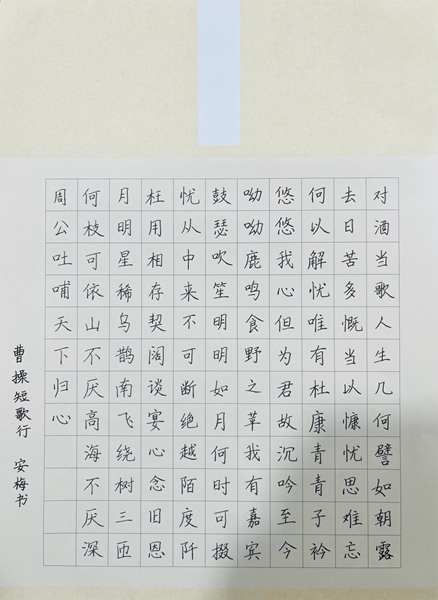 对酒当歌人生几何譬如朝露
去日苦多慨当以慷忧思难忘
何以解忧唯有杜康青青子衿
悠悠我心但为君故沉吟至今
呦呦鹿鸣食野之苹我有嘉宾
鼓瑟吹笙明明如月何时可掇
忧从中来不可断绝越陌度阡
枉用相存契阔谈宴心念旧恩
月明星稀乌鹊南飞绕树三匝
何枝可依山不厌高海不厌深
周公吐哺天下归心
曹操短歌行 安梅书